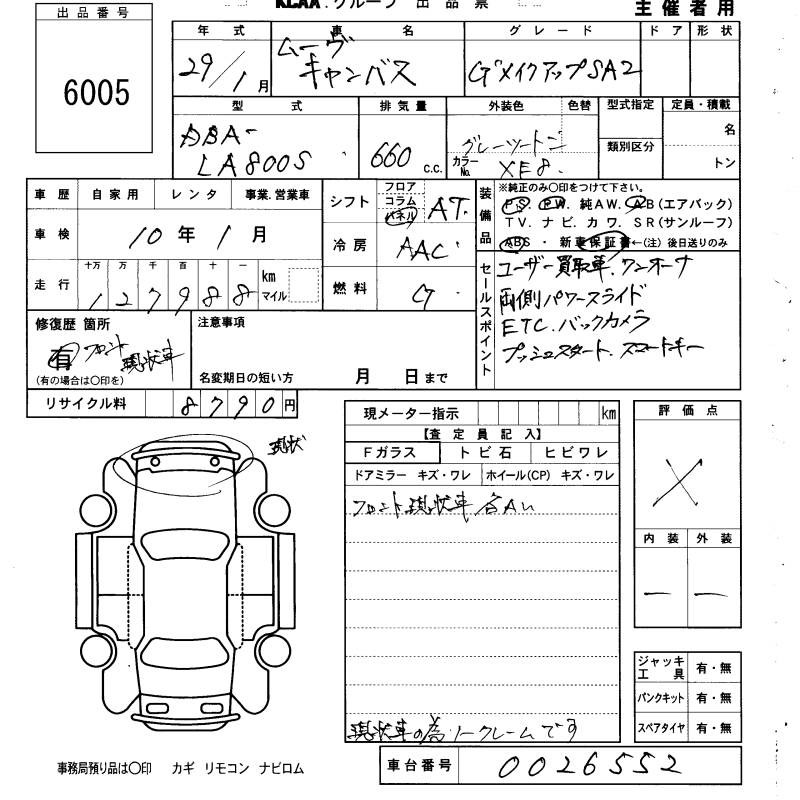 KCAA グループ 出品票
主催者用
出品番号
6005
年式 車名 グレード ドア 形状
29/1月 ムーヴ キャンバス GメイクアップSA2
型式 排気量 外装色 色替 型式指定 定員・積載
類別区分 名
トン
DBA-
LA800S 660 c.c. グレーツートーン
カラーNo. XE8
車歴 自家用 レンタ 事業.営業車
シフト フロア コラム パネル AT
車検 10年1月
冷房 AAC
走行 十万 万 千 百 十 一 km マイル
127988
燃料 G
装備品
※純正のみ〇印をつけて下さい。
PS. PW. 純AW. AB(エアバック)
TV. ナビ. カワ. SR(サンルーフ)
ABS ・ 新車保証書←(注) 後日送りのみ
セールスポイント
ユーザー買取車. ワンオーナ
両側パワースライド
ETC. バックカメラ
プッシュスタート. スマートキー
修復歴 箇所
有 フロント 現状車
(有の場合は〇印を)
注意事項
名変期日の短い方 月 日まで
リサイクル料 8790円
現メーター指示 km
【査定員記入】
Fガラス トビ石 ヒビワレ
ドアミラー キズ・ワレ ホイール(CP) キズ・ワレ
フロント現状車 各A
現状車の為ノークレームです
現状
評価点
X
内装 外装
ー ー
ジャッキ工具 有・無
パンクキット 有・無
スペアタイヤ 有・無
事務局預り品は〇印 カギ リモコン ナビロム
車台番号 0026552